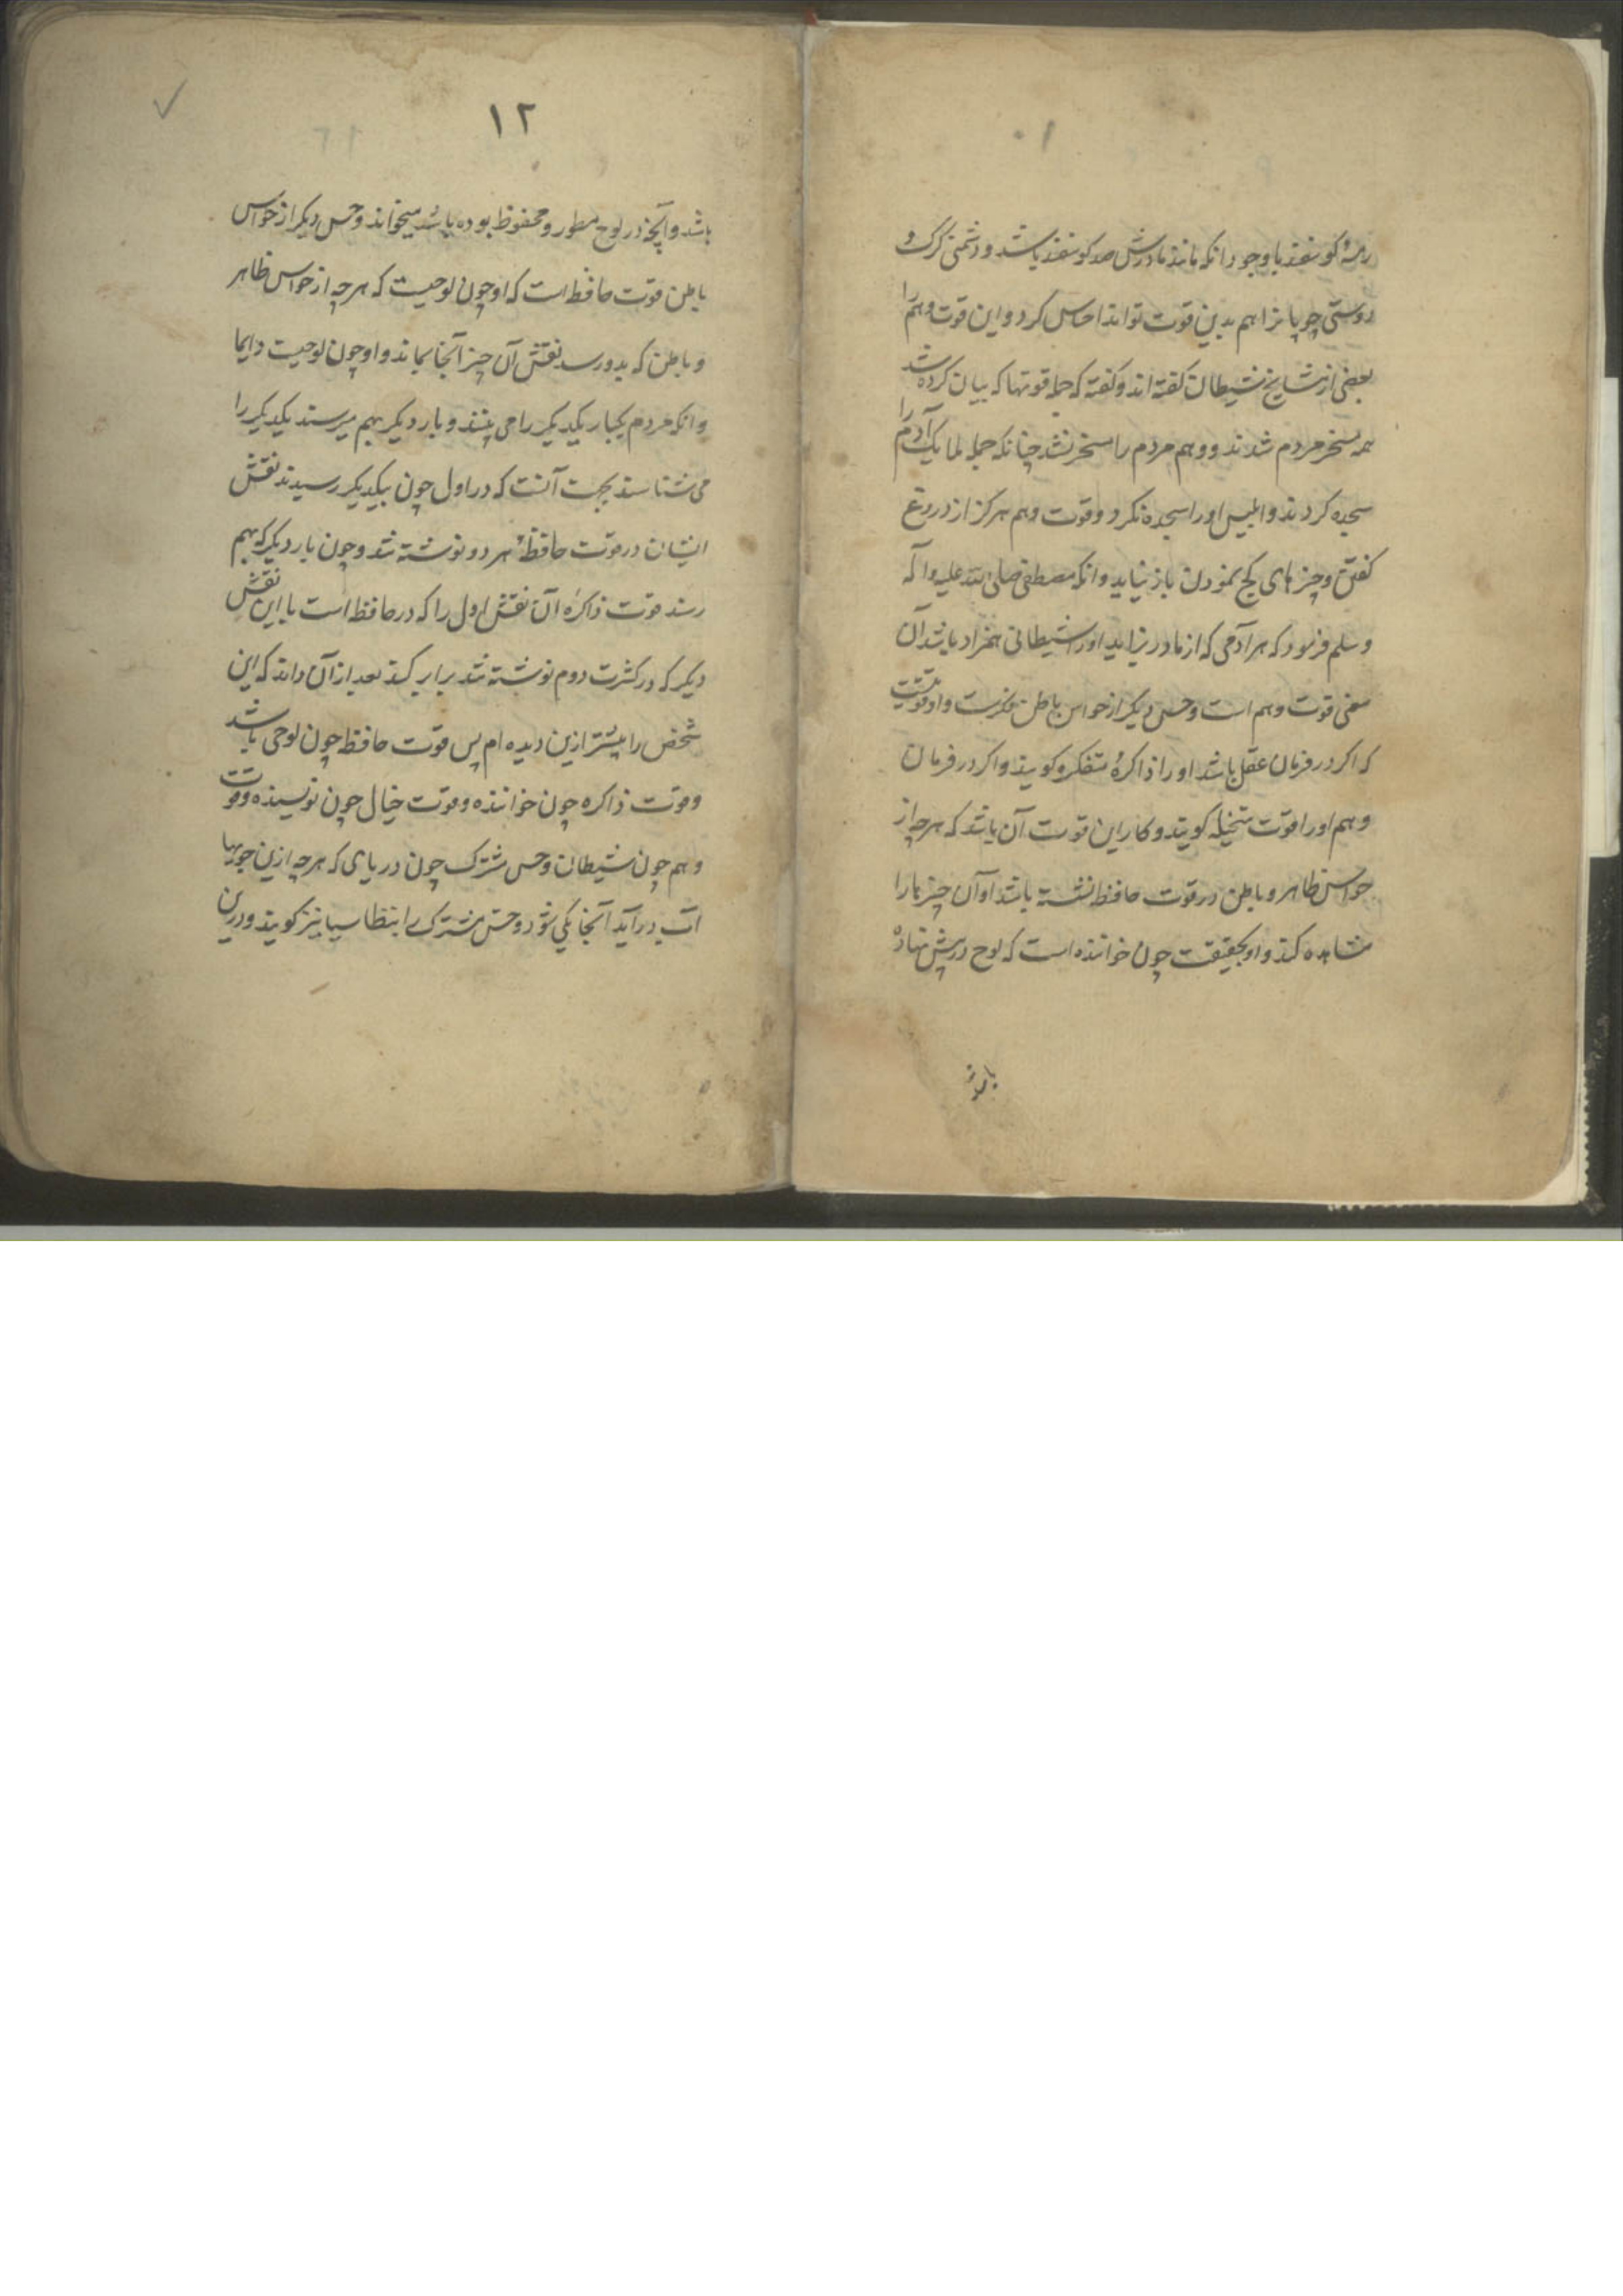 رمهٔ کوسفند با وجود انکه مانند مادرش صد کوسفند باشد و دشمنی کرک و
دوستی چوپانرا هم بدین قوت تواند احساس کرد و این قوت وهم را
بعضی از مشایخ شیطان کفته اند و کفته که جمله قوتها که بیان کرده شد
همه مسخر مردم شدند و وهم مردم را مسخر نشد چنانکه جمله ملایک آدم را
سجده کردند و ابلیس اورا سجده نکرد و قوت وهم هرکز از دروغ
کفتن و چیزهای کج نمودن باز نیاید و انکه مصطفی صلی الله علیه و اله
و سلم فرمود که هر آدمی که از مادر بزاید اورا شیطانی همزاد باشد آن
معنی قوت وهم است و حس دیکر از حواس باطن فکرست و او قوتیست
که اکر در فرمان عقل باشد اورا ذاکره متفکره کویند و اکر در فرمان
وهم اورا قوت متخیله کویند و کار این قوت آن باشد که هرچه از
حواس ظاهر و باطن در قوت حافظه نشسته باشد او آن چیزها را
مشاهده کند و او بحقیقت چون خواننده است که لوح در پیش نهاده
باشد
۱۲
باشد و آنچه در لوح مسطور و محفوظ بوده باشد میخواند و حس دیکر از حواس
باطن قوت حافظه است که او چون لوحیست که هرچه از حواس ظاهر
و باطن که بدو رسد نقش آن چیز آنجا بماند و او چون لوحیست دایما
و انکه مردم یکبار یکدیکر را می بینند و بار دیکر بهم میرسند یکدیکر را
می شناسند بجهت آنست که در اول چون بیکدیکر رسیدند نقش
ایشان در قوت حافظهٔ هر دو نوشته شد و چون بار دیکر که بهم
رسند قوت ذاکره آن نقش اول را که در حافظه است با این نقش
دیکر که در کثرت دوم نوشته شد برابر کند بعد از آن داند که این
شخص را پیشتر ازین دیده ام پس قوت حافظه چون لوحی باشد
و قوت ذاکره چون خواننده و قوت خیال چون نویسنده و قوت
وهم چون شیطان و حس مشترک چون دریای که هرچه ازین جویها
آب در آید آنجا یکی شود و حس مشترک را بنطاسیا نیز کویند و درین